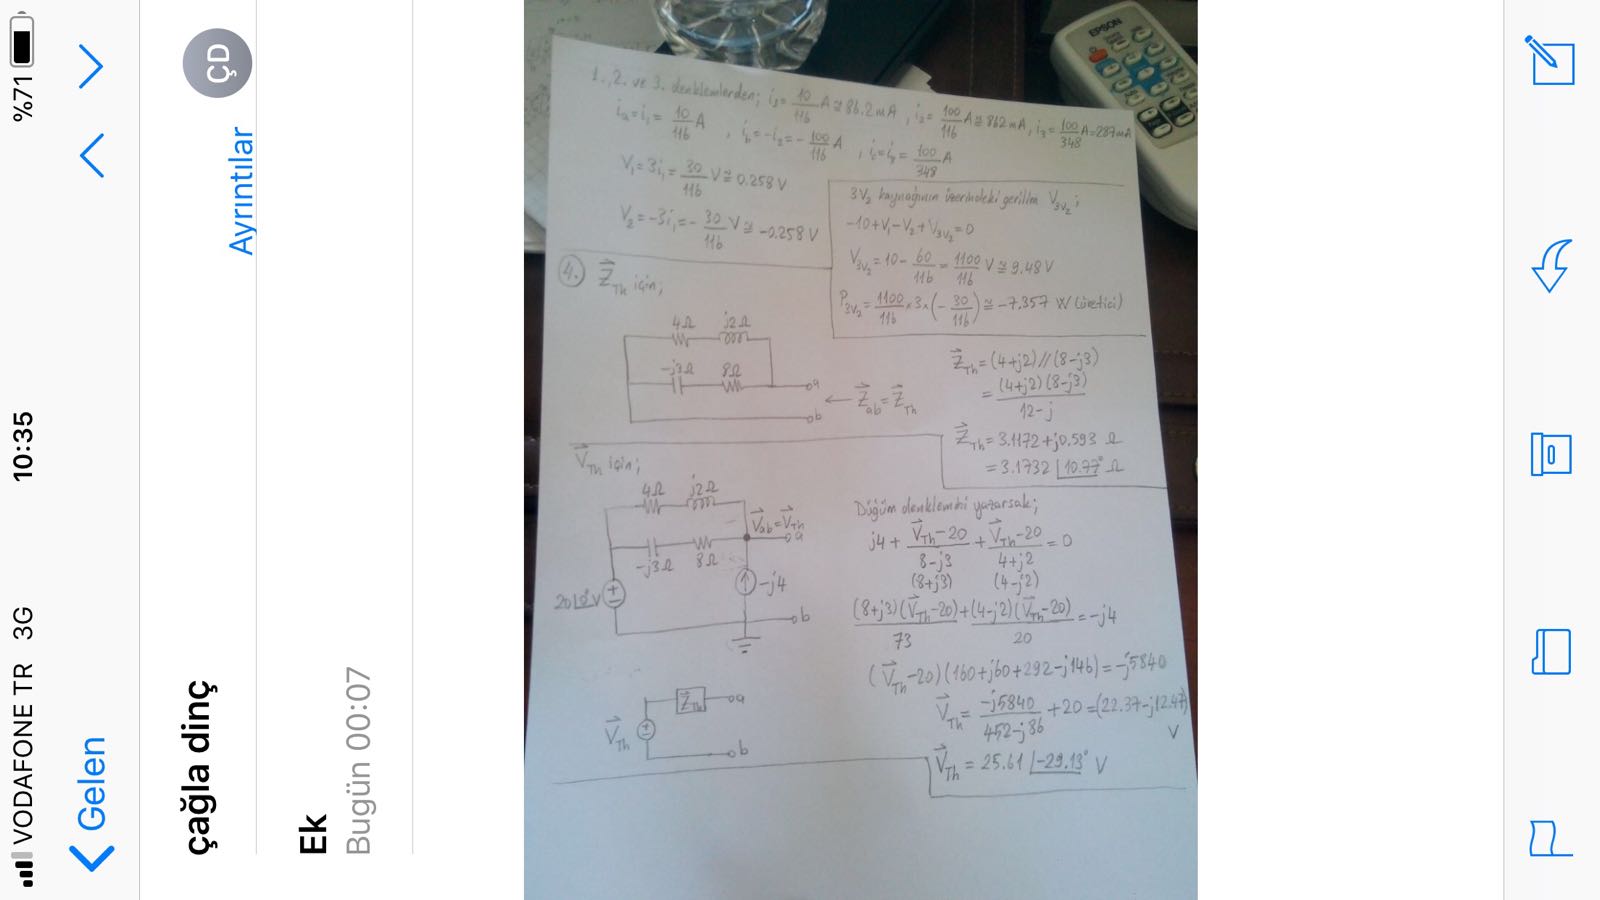 %71
10:35
VODAFONE TR 3G
Gelen
ÇD
Ayrıntılar
çağla dinç
Ek
Bugün 00:07
EPSON
1., 2. ve 3. denklemlerden; i₁= 10/116 A ≅ 86.2 mA , i₂= 100/116 A ≅ 862 mA, i₃= 100/348 A = 287 mA
iₐ=i₁= 10/116 A , i_b=-i₂=- 100/116 A , i_c=i₃= 100/348 A
V₁=3i₁= 30/116 V ≅ 0.258 V
V₂=-3i₁=- 30/116 V ≅ -0.258 V
3V₂ kaynağının üzerindeki gerilim V_3V₂;
-10+V₁-V₂+V_3V₂=0
V_3V₂=10- 60/116 = 1100/116 V ≅ 9.48 V
P_3V₂= 1100/116 ×3×(- 30/116) ≅ -7.357 W (üretici)
4. Z_Th için;
4Ω j2Ω
-j3Ω 8Ω
a
b
← Z_ab=Z_Th
Z_Th=(4+j2)//(8-j3)
= (4+j2)(8-j3)/12-j
Z_Th=3.1172+j0.593 Ω
=3.1732 ∠10.77° Ω
V_Th için;
4Ω j2Ω
V_ab=V_Th
a
-j3Ω 8Ω
-j4
20∠0° V
b
Düğüm denklemini yazarsak;
j4+ V_Th-20/8-j3 + V_Th-20/4+j2 =0
(8+j3) (4-j2)
(8+j3)(V_Th-20)/73 + (4-j2)(V_Th-20)/20 =-j4
(V_Th-20)(160+j60+292-j146)=-j5840
V_Th= -j5840/452-j86 +20=(22.37-j12.47)
V
V_Th = 25.61 ∠-29.13° V
Z_Th
a
V_Th
b